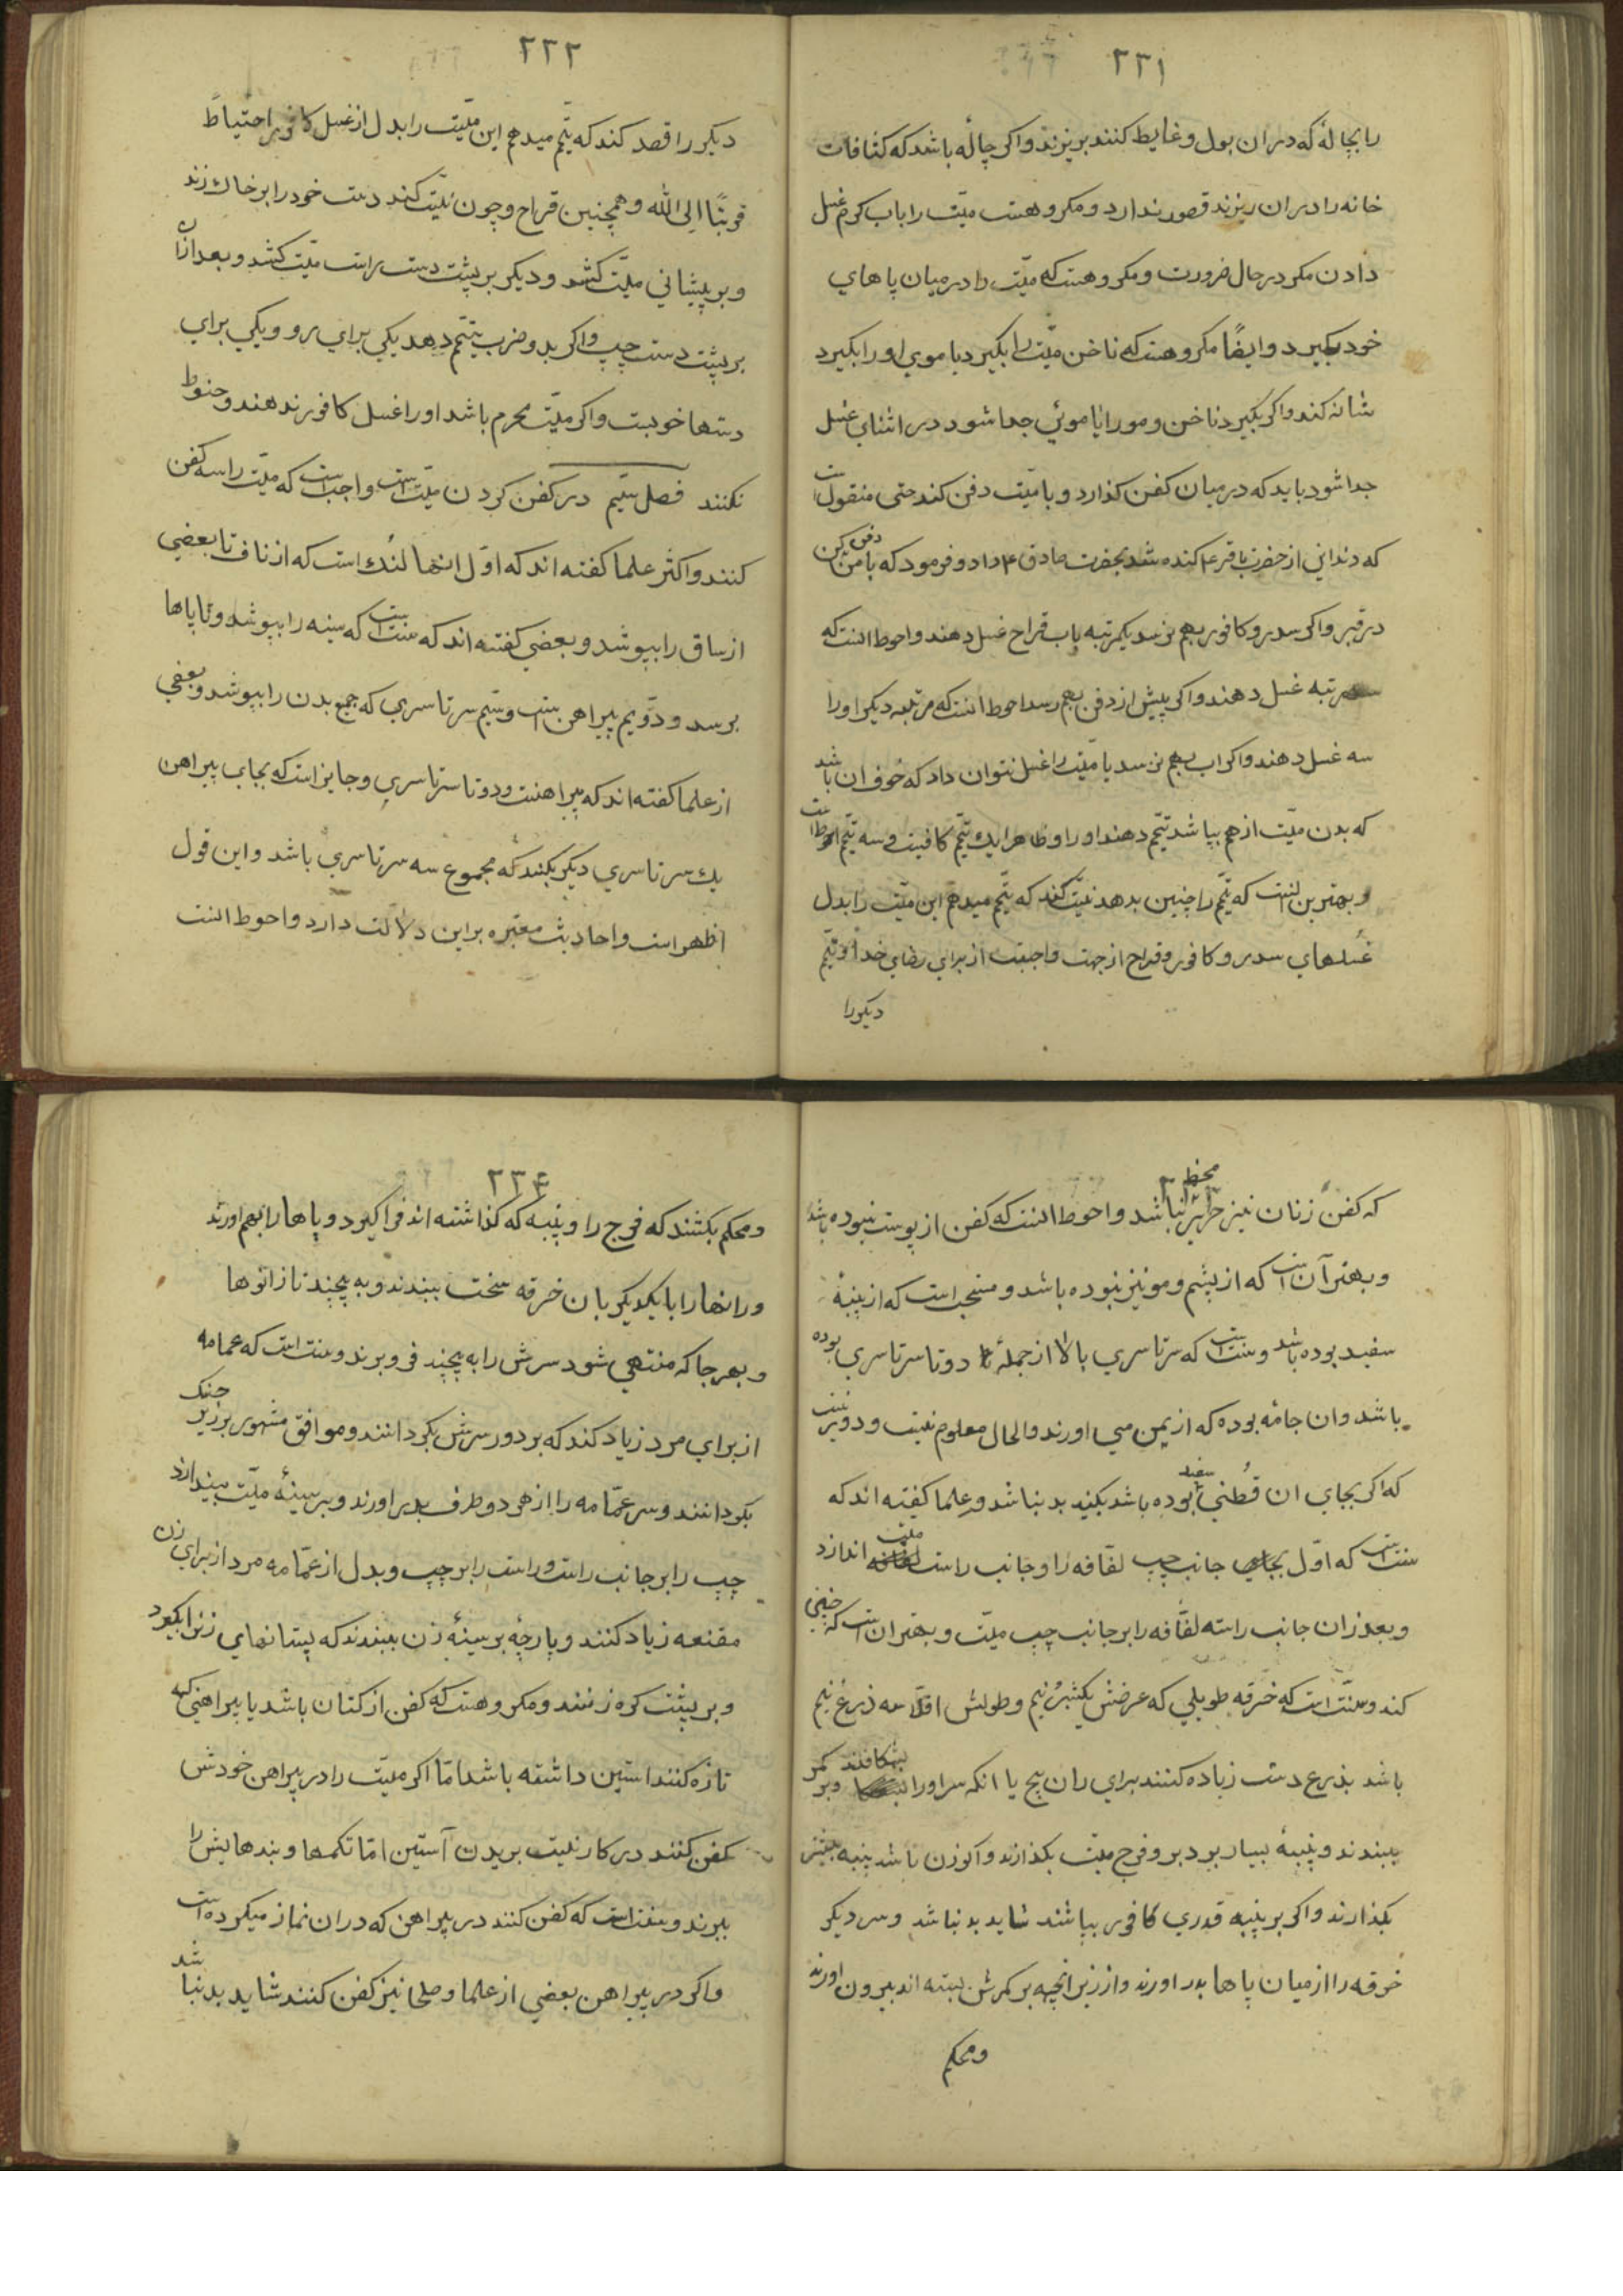 ۲۳۱
را بچاله که در ان بول و غایط کنند بریزند و اکر چاله باشد که کثافات
خانه را در ان ریزند قصور ندارد و مکروهست میّت را باب کرم غسل
دادن مکر در حال ضرورت و مکروهست که میّت را در میان پاهای
خود بکیرد و ایضًا مکروهست که ناخن میّت را بکیرد یا موی او را بکیرد
شانه کند و اکر بکیرد ناخن و مو را یا موئی جدا شود در اثنای غسل
جدا شود باید که در میان کفن کذارد و با میّت دفن کند حتی منقول است
که دندانی از حضرت باقر ع کنده شد بحضرت صادق ع داد و فرمود که با من دفن کن
در قبر و اکر سدر و کافور بهم نرسد یکمرتبه باب قراح غسل دهند و احوط انست که
سه مرتبه غسل دهند و اکر پیش از دفن بهم رسد احوط انست که مرتبه دیکر او را
سه غسل دهند و اکر اب بهم نرسد یا میّت را غسل نتوان داد که خوف ان باشد
که بدن میّت از هم بپاشد تیمّم دهند او را و ظاهرا یک تیمّم کافیست و سه تیمّم احوط است
و بهترین انست که تیمّم را چنین بدهد نیّت کند که تیمّم میدهم این میّت را بدل
غسلهای سدر و کافور و قراح از جهت واجبست از برای رضای خدا و تیمّم
دیکر را
۲۳۲
دیکر را قصد کند که تیمّم میدهم این میّت را بدل از غسل کافور احتیاطً
قربتًا الی الله و همچنین قراح و چون نیّت کند دست خود را بر خاک زند
و بر پیشانی میّت کشد و دیکر بر پشت دست راست میّت کشد و بعد ازان
بر پشت دست چپ و اکر بدو ضرب تیمّم دهد یکی برای رو و یکی برای
دستها خوبست و اکر میّت محرم باشد او را غسل کافور ندهند و حنوط
نکنند فصل سیّم در کفن کردن میّت است و واجب است که میّت را سه کفن
کنند و اکثر علما کفته اند که اوّل انها لنک است که از ناف تا بعضی
از ساق را بپوشد و بعضی کفته اند که سنت است که سینه را بپوشد و تا پاها
برسد و دوّیم پیراهن است و سیّم سرتاسری که جمیع بدن را بپوشد و بعضی
از علما کفته اند که پیراهنست و دو تا سرتاسری و جایز است که بجای پیراهن
یک سرتاسری دیکر بکنند که مجموع سه سرتاسری باشد و این قول
اظهر است و احادیث معتبره بر این دلالت دارد و احوط انست
که کفن زنان نیز حریر محض نباشد و احوط انست که کفن از پوست نبوده باشد
و بهتر آن است که از پشم و مو نیز نبوده باشد و مستحب است که از پنبهٔ
سفید بوده باشد و سنت است که سرتاسری بالا از جملهٔ دو تا سرتاسری بوده
باشد وان جامه بوده که از یمن می اورند والحال معلوم نیست و دور نیست
که اکر بجای ان قُطنی سفید بوده باشد بکنید بد نباشد و علما کفته اند که
سنت است که اوّل جانب چپ لفّافه را و جانب راست میّت اندازد
و بعد زان جانب راسته لفّافه را بر جانب چپ میّت و بهتر ان است که چنین
کند و سنّت است که خرقه طویلی که عرضش یکشبر نیم و طولش اقلا سه ذرع نیم
باشد بذرع دست زیاده کنند برای ران پیچ یا انکه سر او را بشکافند و بر کمر
ببندند و پنبهٔ بسیار بر دبر و فرج میّت بکذارند و اکر زن باشد پنبه بیشتر
بکذارند و اکر بر پنبه قدری کافور بپاشند شاید بد نباشد و سر دیکر
خرقه را از میان پاها بدر اورند و از زیر انچه بر کمرش بسته اند بیرون اورند
ومحکم
۲۳۴
ومحکم بکشند که فرج را و پنبه که کذاشته اند فرا کیرد و پاها را بهم اورند
و رانها را با یکدیکر بان خرقه سخت ببندند و به پیچند تا زانوها
و بهر جا که منتهی شود سرش را به پیچند فرو برند و سنت است که عمامه
از برای مرد زیاد کند که بر دور سرش بکردانند و موافق مشهور بر زیر حنک
بکردانند و سر عمّامه را از هر دو طرف بدر اورند و بر سینهٔ میّت بیندازند
چپ را بر جانب راست و راست را بر چپ و بدل از عمّامه مرد از برای زن
مقنعه زیاد کنند و پارچهٔ بر سینهٔ زن ببندند که پستانهای زنرا بکیرد
و بر پشت کره زنند و مکروهست که کفن از کتان باشد یا پیراهنی که
تازه کنند استین داشته باشد امّا اکر میّت را در پیراهن خودش
کفن کنند در کار نیست بریدن آستین امّا تکمها و بندهایش را
ببرند و سنت است که کفن کنند در پیراهن که در ان نماز میکرده است
و اکر در پیراهن بعضی از علما و صلحا نیز کفن کنند شاید بد نباشد